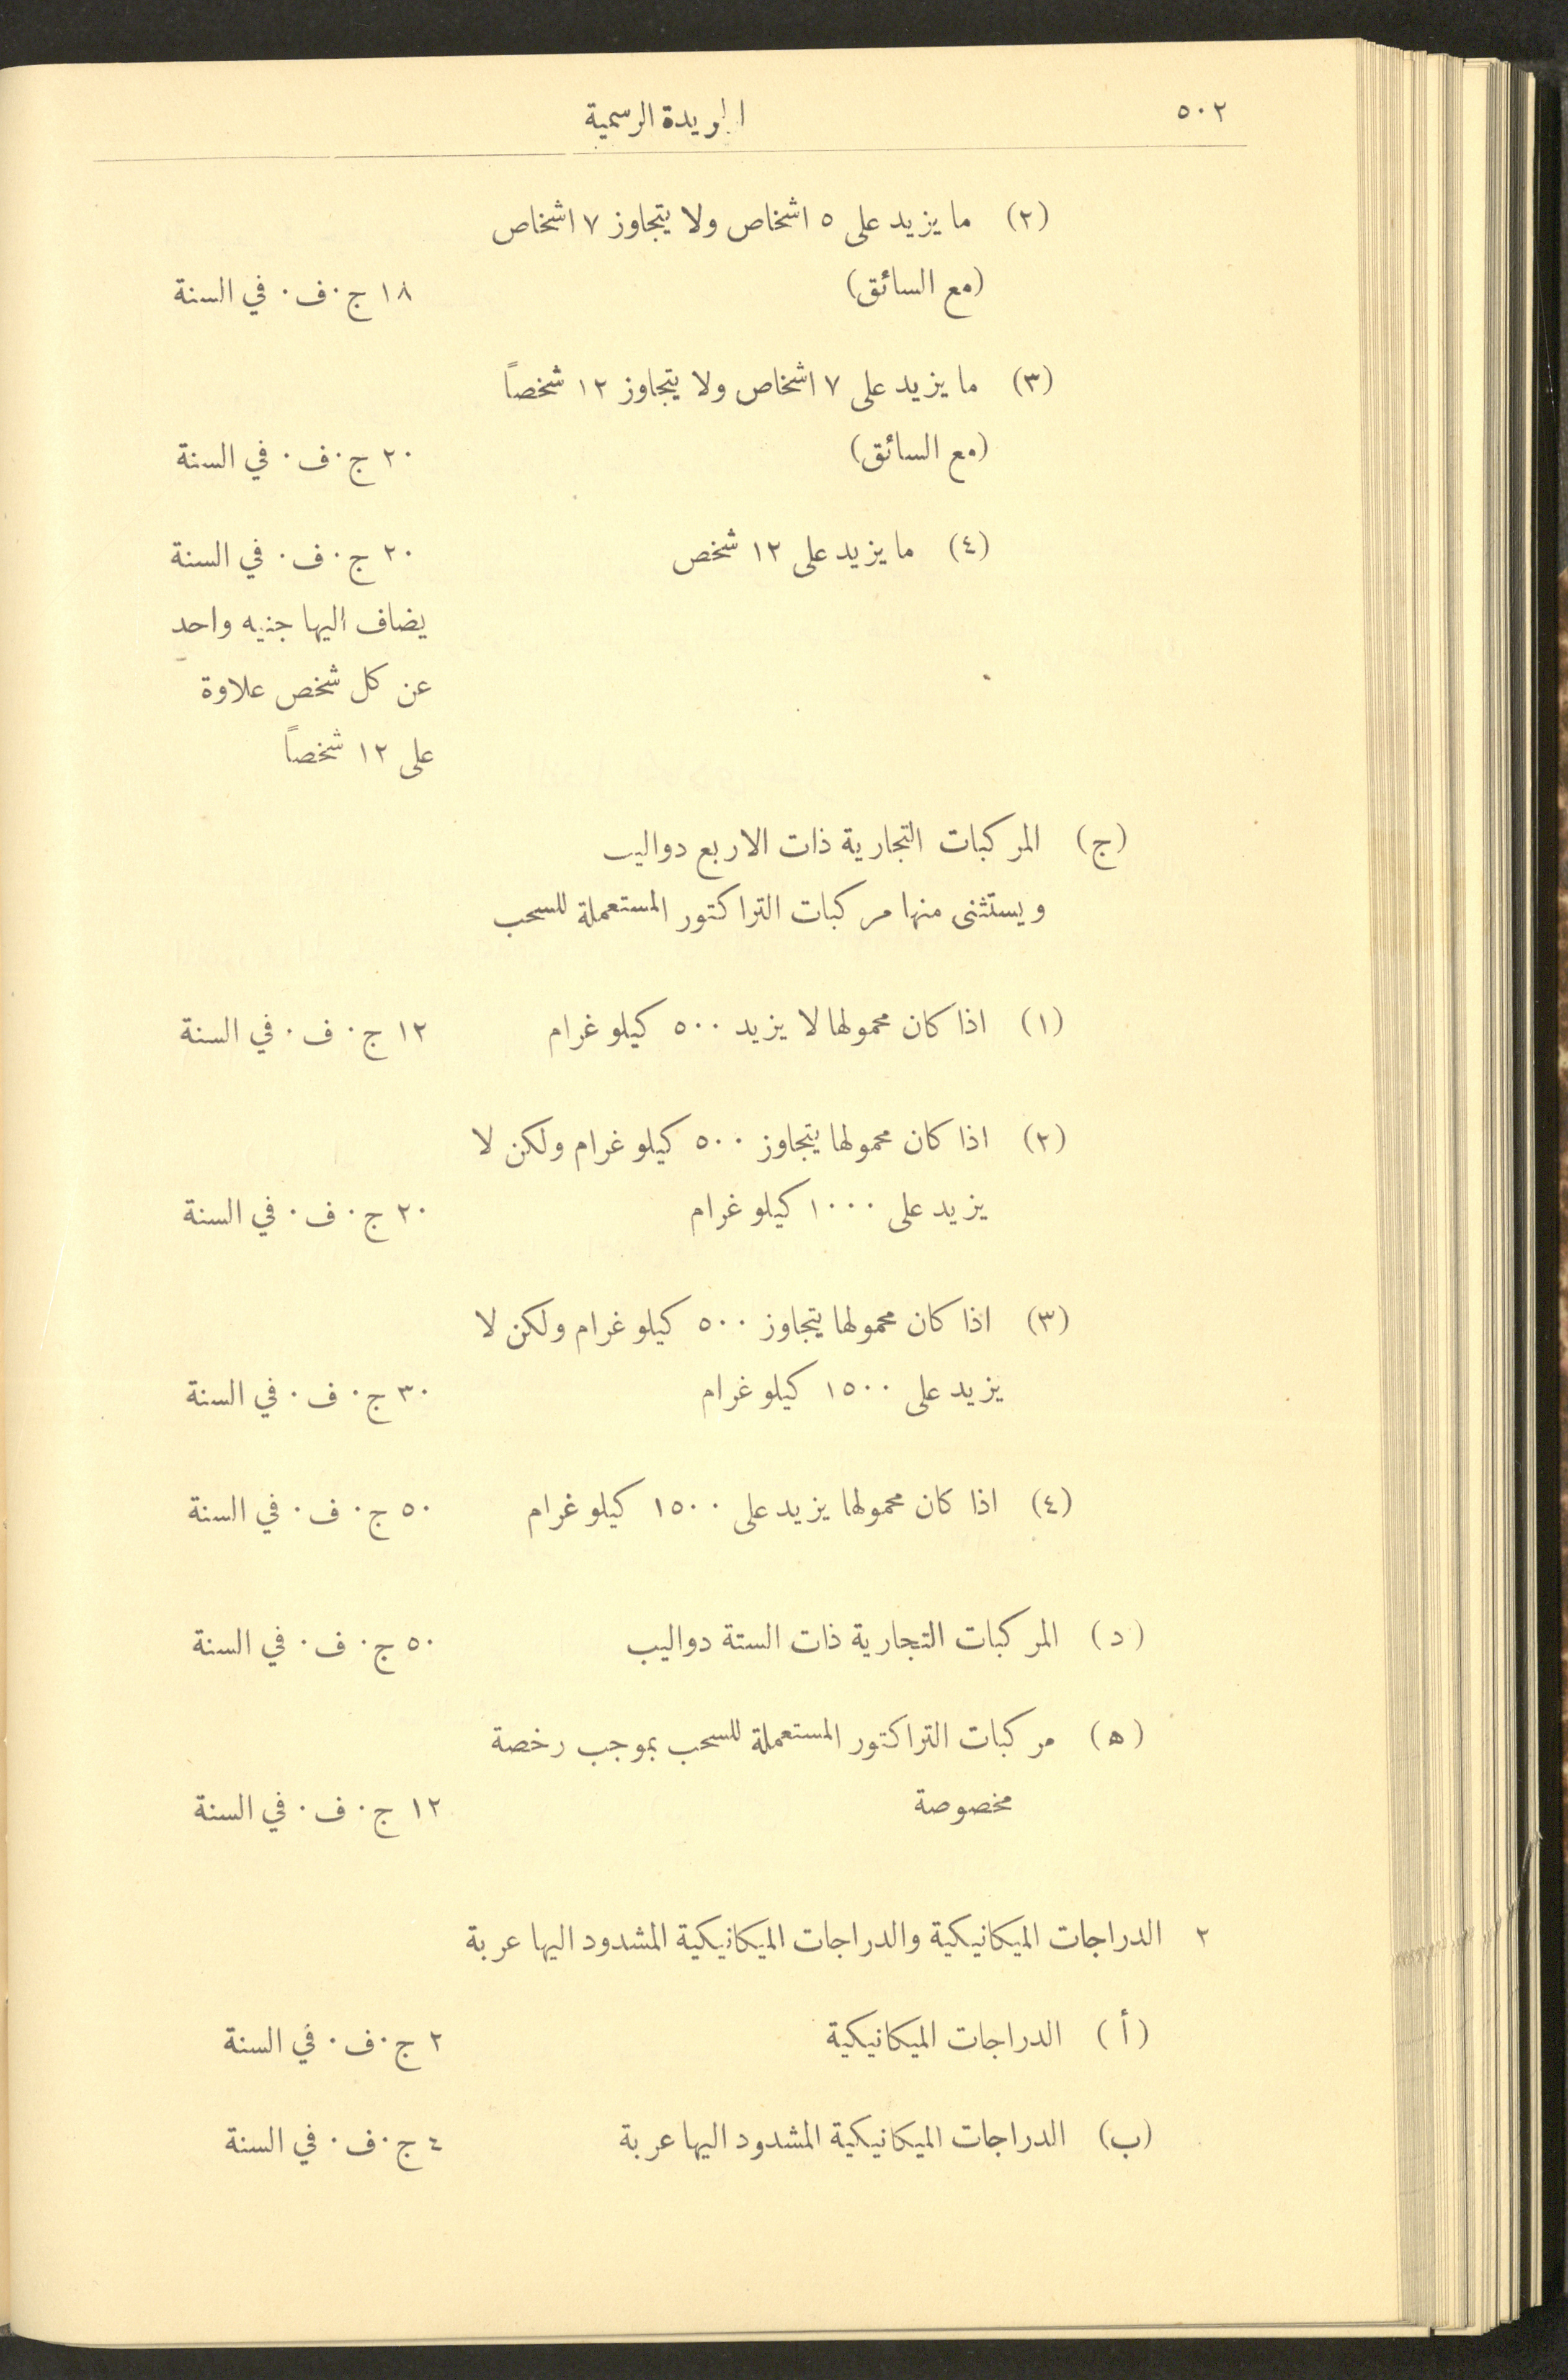 ٥٠٢
الجريدة الرسمية
(٢) ما يزيد على ٥ اشخاص ولا يتجاوز ٧ اشخاص
(مع السائق) ١٨ ج٠ف٠ في السنة
(٣) ما يزيد على ٧ اشخاص ولا يتجاوز ١٢ شخصاً
(مع السائق) ٢٠ ج٠ف٠ في السنة
(٤) ما يزيد على ١٢ شخص ٢٠ ج٠ ف٠ في السنة
يضاف اليها جنيه واحد
عن كل شخص علاوة
على ١٢ شخصاً
(ج) المركبات التجارية ذات الاربع دواليب
ويستثنى منها مركبات التراكتور المستعملة للسحب
(١) اذا كان محمولها لا يزيد ٥٠٠ كيلو غرام ١٢ ج٠ ف٠ في السنة
(٢) اذا كان محمولها يتجاوز ٥٠٠ كيلو غرام ولكن لا
يزيد على ١٠٠٠ كيلو غرام ٢٠ ج٠ ف٠ في السنة
(٣) اذا كان محمولها يتجاوز ٥٠٠ كيلو غرام ولكن لا
يزيد على ١٥٠٠ كيلو غرام ٣٠ ج٠ ف٠ في السنة
(٤) اذا كان محمولها يزيد على ١٥٠٠ كيلو غرام ٥٠ ج٠ ف٠ في السنة
(د) المركبات التجارية ذات الستة دواليب ٥٠ ج٠ ف٠ في السنة
(ه) مركبات التراكتور المستعملة للسحب بموجب رخصة
مخصوصة ١٢ ج٠ ف٠ في السنة
٢ الدراجات الميكانيكية والدراجات الميكانيكية المشدود اليها عربة
(أ) الدراجات الميكانيكية ٢ ج٠ف٠ في السنة
(ب) الدراجات الميكانيكية المشدود اليها عربة ٤ ج٠ف٠ في السنة